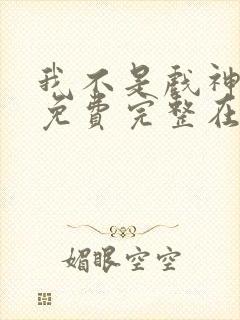 我不是戲神
免費完整在
媚眼空空